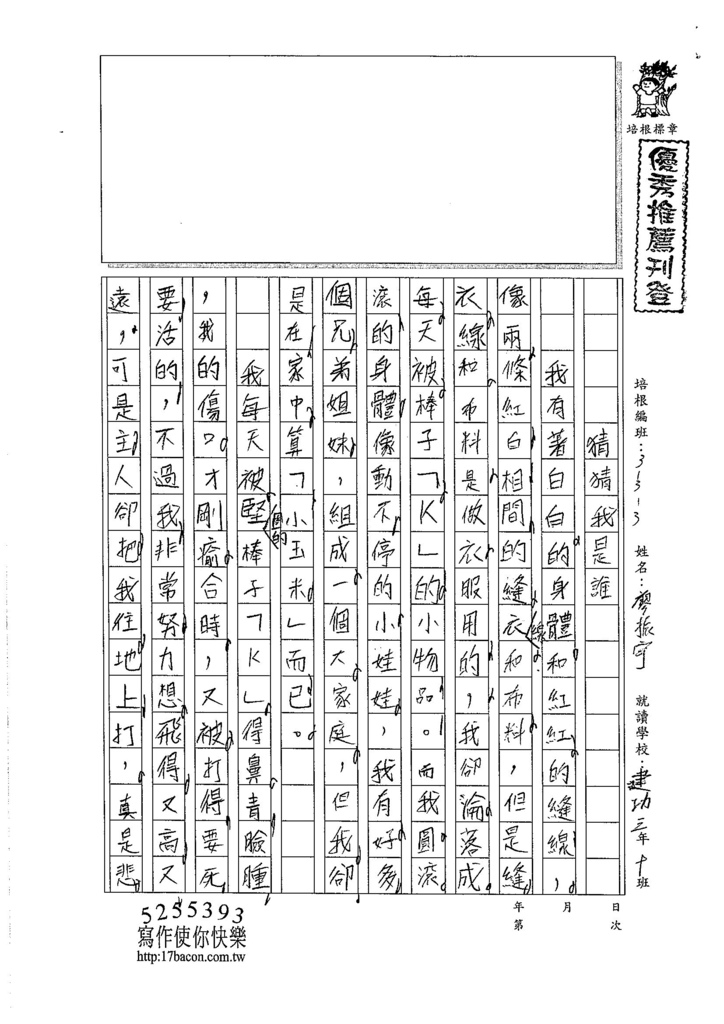 培根標章
優秀推薦刊登
培根編班：3313 姓名：廖振宇 就讀學校：建功三年十班
猜猜我是誰
我有著白白的身體和紅紅的縫線，
像兩條紅白相間的縫衣線和布料，但是縫
衣線和布料是做衣服用的，我卻淪落成
每天被棒子「K」的小物品。而我圓滾
滾的身體像動不停的小娃娃，我有好多
個兄弟姐妹，組成一個大家庭，但我卻
是在家中算「小玉米」而已。
我每天被堅固的棒子「K」得鼻青臉腫
，我的傷口才剛癒合時，又被打得要死
要活的，不過我非常努力想飛得又高又
遠，可是主人卻把我往地上打，真是悲
年 月 日
第 次
5255393
寫作使你快樂
http:/17bacon.com.tw